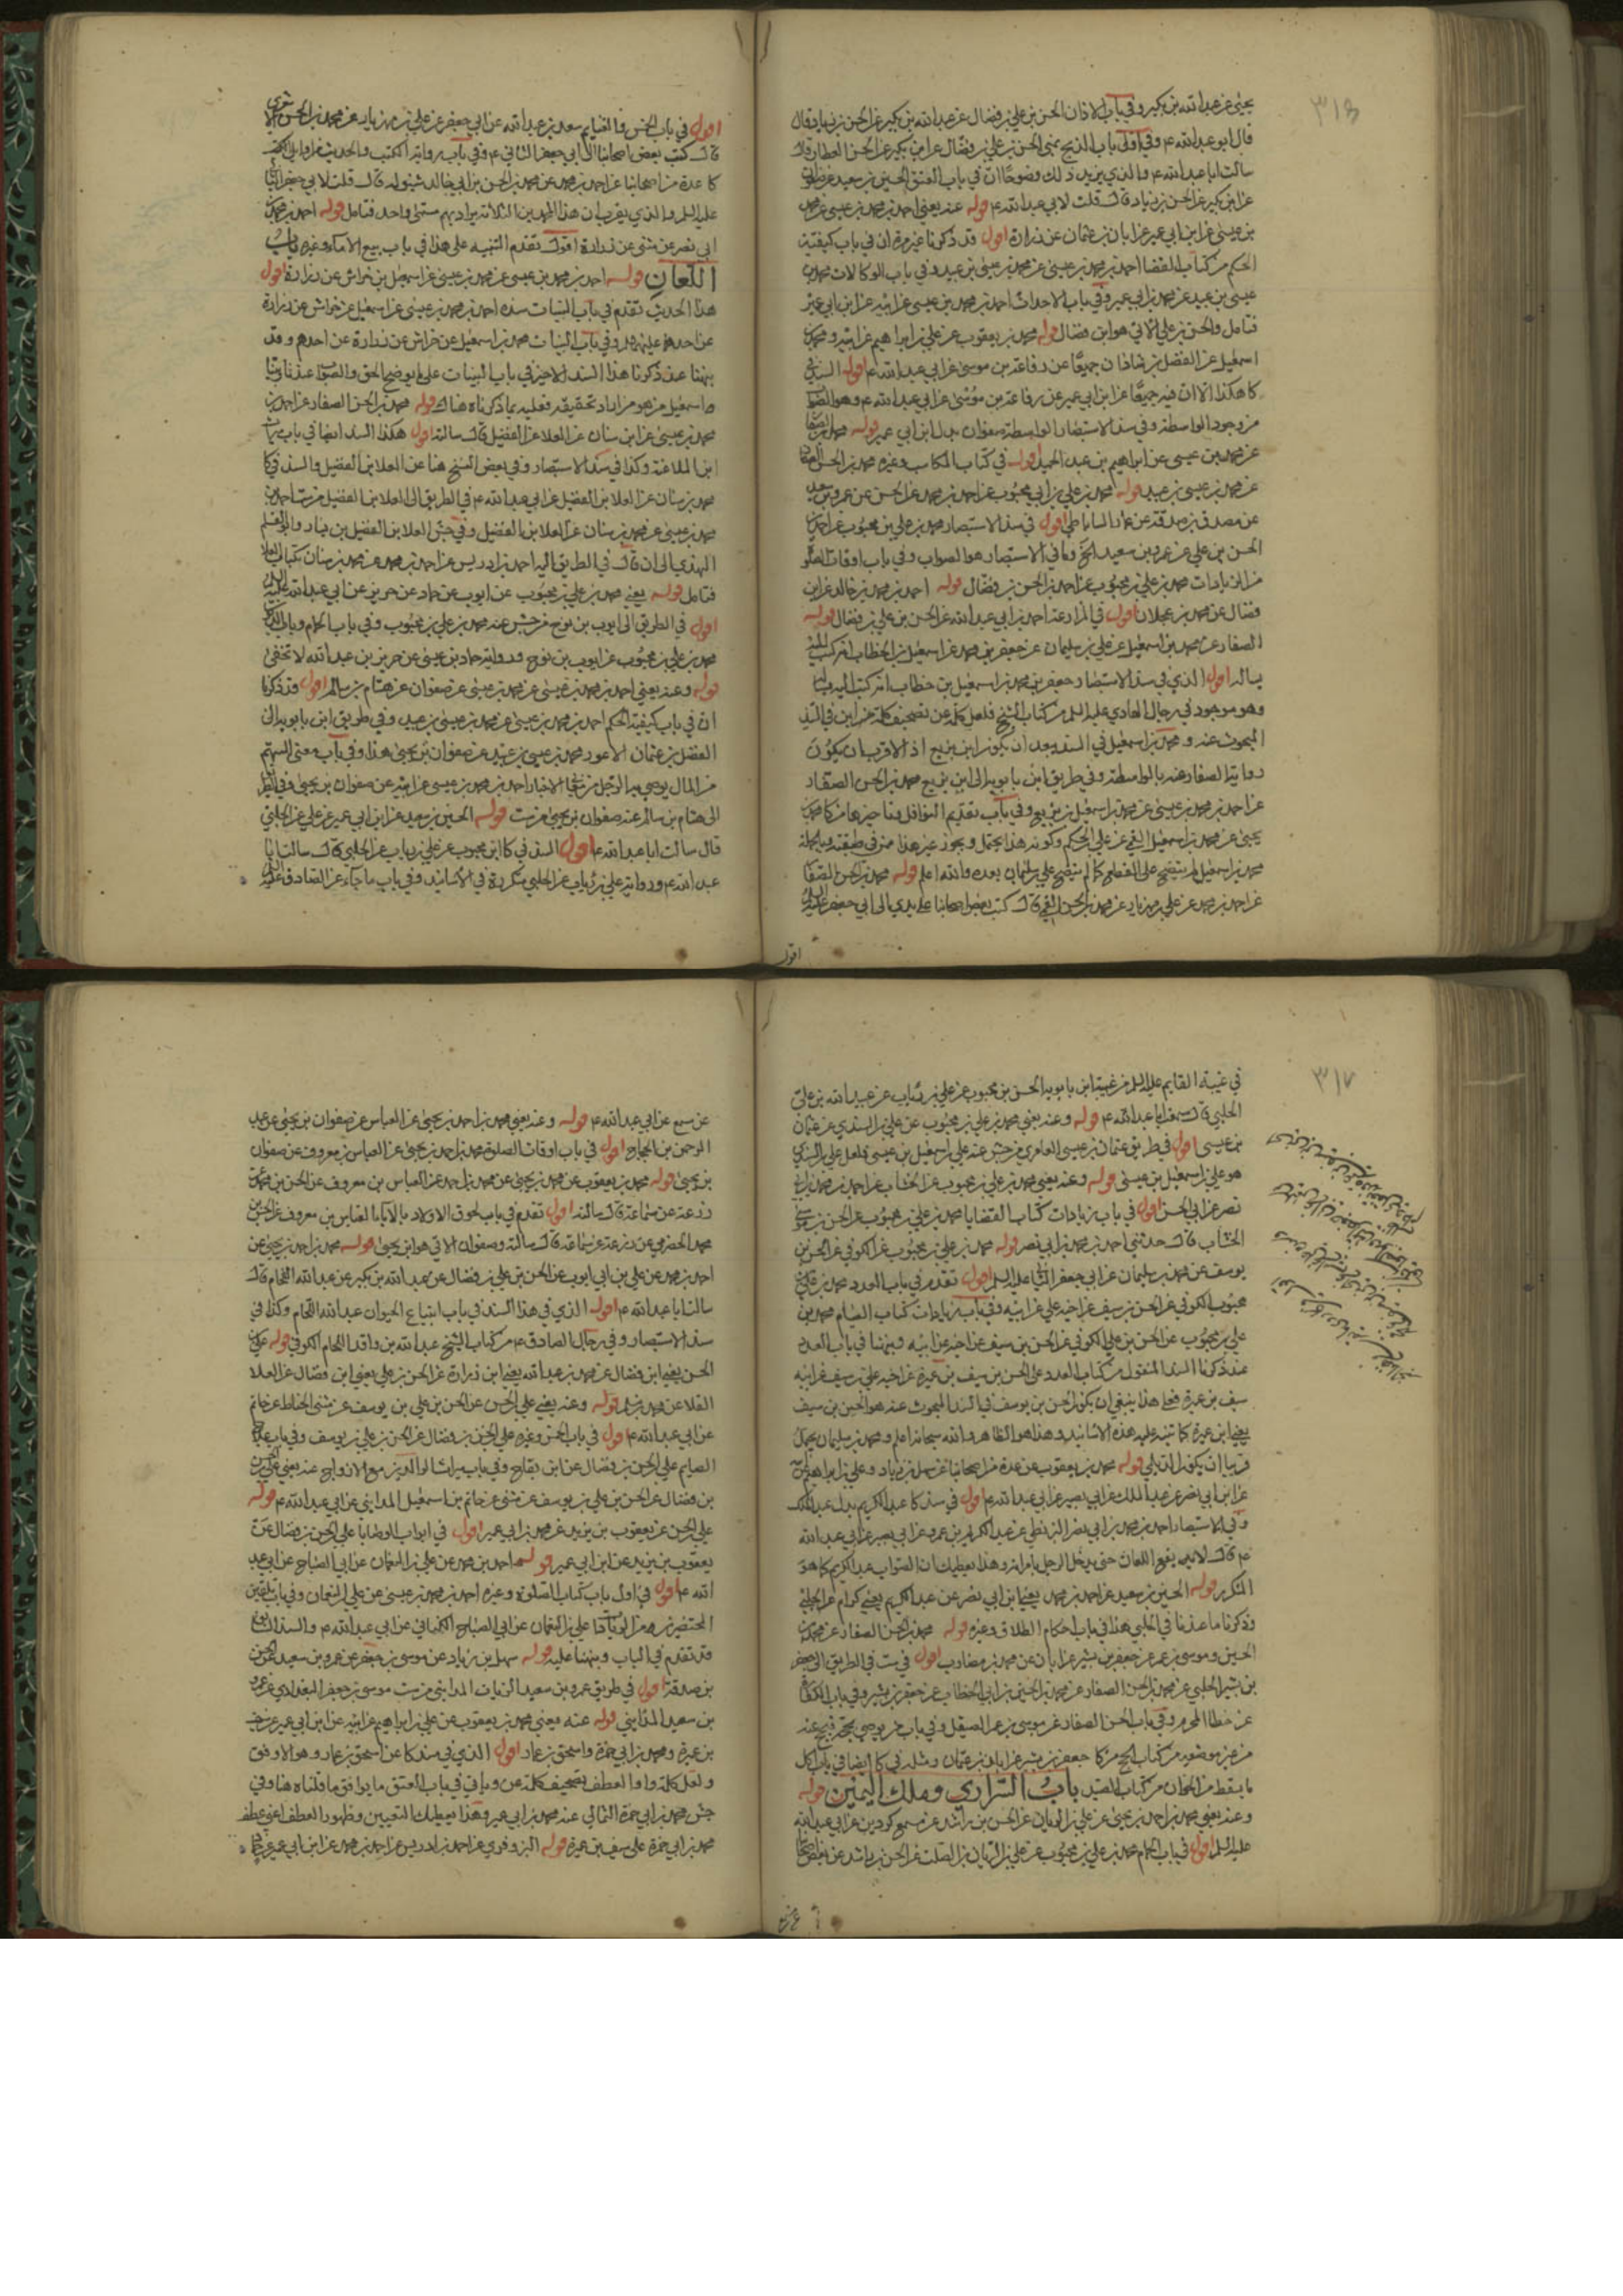 ٣١٦
يحيى عن عبد الله بن بكير وفي باب الاذان الحسن بن علي بن فضال عن عبد الله بن بكير عن الحسن بن زياد قال
قال ابو عبد الله ع وفي اوائل باب الذبح يعني الحسن بن علي بن فضال عن ابن بكير عن الحسن العطار قال
سالت ابا عبد الله ع والذي يزيد ذلك وضوحًا ان في باب العتق الحسين بن سعيد عن
عن ابن بكير عن الحسن بن زياد قال قلت لابي عبد الله ع قوله عنه يعني احمد بن محمد بن عيسى عن محمد
بن عيسى عن ابن ابي عمير عن ابان بن عثمان عن زرارة اقول قد ذكرنا غير مرة ان في باب كيفية
الحكم من كتاب القضا احمد بن محمد بن عيسى عن محمد بن عيسى بن عبيد وفي باب الوكالات محمد بن
عيسى بن عبيد عن محمد بن ابي عمير وفي باب الاحداث احمد بن محمد بن عيسى عن ابيه عن ابن ابي عمير
فتامل والحسن بن علي الاتي هو ابن فضال قوله محمد بن يعقوب عن علي بن ابراهيم عن ابيه ومحمد بن
اسمعيل عن الفضل بن شاذان جميعًا عن رفاعة بن موسى عن ابي عبد الله ع اقول السند في
كا هكذا الا ان فيه جميعًا عن ابن ابي عمير عن رفاعة بن موسى عن ابي عبد الله ع وهو الصواب
من وجود الواسطة وفي سند الاستبصار الواسطة صفوان بدل ابن ابي عمير قوله محمد بن الصفار
عن محمد بن عيسى عن ابراهيم بن عبد الحميد اقول في كتاب المكاتب وغيره محمد بن الحسن الصفار
عن محمد بن عيسى بن عبيد قوله محمد بن علي بن ابي محبوب عن احمد بن محمد عن الحسن عن عمرو بن سعيد
عن مصدق بن صدقة عن عمار الساباطي اقول في سند الاستبصار محمد بن علي بن محبوب عن احمد بن
الحسن بن علي عن عمرو بن سعيد الخ وما في الاستبصار هو الصواب وفي باب اوقات الصلوة
من الزيادات محمد بن علي بن محبوب عن احمد بن الحسن بن فضال قوله احمد بن محمد بن خالد عن ابن
فضال عن محمد بن عجلان اقول في المزارعة احمد بن ابي عبد الله عن الحسن بن علي بن فضال قوله
الصفار عن محمد بن اسمعيل عن علي بن سليمان عن جعفر بن محمد عن اسمعيل بن الخطاب انه كتب اليه
يساله اقول الذي في سند الاستبصار جعفر بن محمد بن اسمعيل بن خطاب انه كتب اليه يساله
وهو موجود في رجال الهادي عليه السلم من كتاب الشيخ فلعل كلمة عن تصحيف كلمة بن في السند
المبحوث عنه ومحمد بن اسمعيل في السند يبعد ان يكون ابن بزيع اذ الاقرب ان يكون
رواية الصفار عنه بالواسطة وفي طريق ابن بابويه الى ابن بزيع محمد بن الحسن الصفار
عن احمد بن محمد بن عيسى عن محمد بن اسمعيل بن بزيع وفي باب تقديم النوافل وتاخيرها من كا محمد بن
يحيى عن محمد بن اسمعيل القمي عن علي بن الحكم وكونه هذا محتمل ويجوز غير هذا ممن في طبقته وبالجملة
محمد بن اسمعيل لم يتضح على القطع كما لم يتضح علي بن سليمان بعده والله اعلم قوله محمد بن الحسن الصفار
عن احمد بن محمد عن علي بن مهزيار عن محمد بن الحسن القمي قال كتب بعض اصحابنا على يدي الى ابي جعفر عليه السلم
اقول
اقول في باب الخمس والغنايم سعد بن عبد الله عن ابي جعفر عن علي بن مهزيار عن محمد بن الحسن الاشعري
قال كتب بعض اصحابنا الى ابي جعفر الثاني ع وفي باب رواية الكتب والحديث من اوايل
كا عدة من اصحابنا عن احمد بن محمد عن محمد بن الحسن بن ابي خالد شينولة قال قلت لابي جعفر الثاني
عليه السلم والذي يقرب ان هذا المحمدين الثلاثة يراد بهم مسمى واحد فتامل قوله احمد بن محمد بن
ابي نصر عن مثنى عن زرارة اقول تقدم التنبيه على هذا في باب بيع الاماء وغيره باب
اللعان قوله احمد بن محمد بن عيسى عن محمد بن عيسى عن اسمعيل بن خراش عن زرارة اقول
هذا الحديث تقدم في باب البينات سنده احمد بن محمد بن عيسى عن اسمعيل عن خراش عن زرارة
عن احدهما عليهما السلم وفي باب البينات محمد بن اسمعيل عن خراش عن زرارة عن احدهم وقد
نبهنا عند ذكرنا هذا السند الاخير في باب البينات على ما يوضح الحق والصواب عندنا وبينا
ما اسمعيل من هو من اراد تحقيقه فعليه بما ذكرناه هناك قوله محمد بن الحسن الصفار عن احمد بن
محمد بن عيسى عن ابن سنان عن العلا عن الفضيل قال سالته اقول هكذا السند ايضا في باب ميراث
ابن الملاعنة وكذا في سند الاستبصار وفي بعض النسخ هنا عن العلا بن الفضيل والسند في كا
محمد بن سنان عن العلا بن الفضيل عن ابي عبد الله ع في الطريق الى العلا بن الفضيل من ست احمد بن
محمد بن عيسى عن محمد بن سنان عن العلا بن الفضيل وفي جش العلا بن الفضيل بن يسار والقسم
النهدي الى ان قال في الطريق اليه احمد بن ادريس عن احمد بن محمد عن محمد بن سنان كتاب العلا
فتامل قوله يعني محمد بن علي بن محبوب عن ايوب عن حماد عن حريز عن ابي عبد الله عليه السلم
اقول في الطريق الى ايوب بن نوح من جش عنه محمد بن علي بن محبوب وفي باب الحمام وباب
محمد بن علي بن محبوب عن ايوب بن نوح ورواية حماد بن عيسى عن حريز بن عبد الله لا تخفى
قوله وعنه يعني احمد بن محمد بن عيسى عن محمد بن عيسى عن صفوان عن هشام بن سالم اقول قد ذكرنا
ان في باب كيفية الحكم احمد بن محمد بن عيسى عن محمد بن عيسى بن عبيد وفي طريق ابن بابويه الى
الفضل بن عثمان الاعور محمد بن عيسى بن عبيد عن صفوان بن يحيى هذا وفي باب معنى السهم
من المال يوصي به الرجل من معاني الاخبار احمد بن محمد بن عيسى عن ابيه عن صفوان بن يحيى وفي الطريق
الى هشام بن سالم عنه صفوان بن يحيى من ست قوله الحسين بن سعيد عن ابن ابي عمير عن علي عن الحلبي
قال سالت ابا عبد الله ع اقول السند في كا ابن محبوب عن علي بن رياب عن الحلبي قال سالت ابا
عبد الله ع ورواية علي بن رياب عن الحلبي متكررة في الاسانيد وفي باب ما جاء عن الصادق عليه السلم
٣١٧
في غيبة القايم عليه السلم من غيبة ابن بابويه الحسن بن محبوب عن علي بن رئاب عن عبيد الله بن علي
الحلبي قال سمعت ابا عبد الله ع قوله وعنه يعني محمد بن علي بن محبوب عن علي بن السندي عن عثمان
بن عيسى اقول في طريق عثمان بن عيسى العامري من جش عنه علي بن اسمعيل بن عيسى فلعل علي بن السندي
هو علي بن اسمعيل بن عيسى قوله وعنه يعني محمد بن علي بن محبوب عن الخشاب عن احمد بن محمد بن ابي
نصر عن ابي الحسن اقول في باب زيادات كتاب القضايا محمد بن علي بن محبوب عن الحسن بن موسى
الخشاب قال حدثني احمد بن محمد بن ابي نصر قوله محمد بن علي بن محبوب عن الكوفي عن الحسن بن
يوسف عن محمد بن سليمان عن ابي جعفر الثاني عليه السلم اقول تقدم في باب العدد محمد بن علي بن
محبوب الكوفي عن الحسن بن سيف عن اخيه علي عن ابيه وفي باب زيادات كتاب الصيام محمد بن
علي بن محبوب عن الحسن بن علي الكوفي عن الحسن بن سيف عن اخيه عن ابيه ونبهنا في باب العدد
عند ذكرنا السند المنقول من كتاب العدد على الحسن بن سيف بن عميرة عن اخيه علي بن سيف عن ابيه
سيف بن عميرة فعلى هذا ينبغي ان يكون الحسن بن يوسف في السند المبحوث عنه هو الحسين بن سيف
يعني ابن عميرة كما تنبه عليه هذه الاسانيد وهذا هو الظاهر والله سبحانه اعلم ومحمد بن سليمان يحتمل
قريبا ان يكون الديلمي قوله محمد بن يعقوب عن عدة من اصحابنا عن سهل بن زياد وعلي بن ابراهيم
عن ابن ابي نصر عن عبد الملك عن ابي بصير عن ابي عبد الله ع اقول في سند كا عبد الكريم بدل عبد الملك
وفي الاستبصار احمد بن محمد بن ابي نصر البزنطي عن عبد الكريم بن عمرو عن ابي بصير عن ابي عبد الله
ع قال لا يقع اللعان حتى يدخل الرجل بامراته وهذا يعطيك ان الصواب عبد الكريم كما هو
المتكرر قوله الحسين بن سعيد عن احمد بن محمد يعني ابن ابي نصر عن عبد الكريم يعني كرام عن الحلبي
وذكرنا ما عندنا في الحلبي هذا في باب احكام الطلاق وغيره قوله محمد بن الحسن الصفار عن محمد بن
الحسين وموسى بن عمر عن جعفر بن بشير عن ابان عن محمد بن مضارب اقول في ست في الطريق الى جعفر
بن بشير الحلبي عن محمد بن الحسن الصفار عن محمد بن الحسين بن ابي الخطاب عن جعفر بن بشير وفي باب الكفارة
عن خطا المحرم وفي باب الحسن الصفار عن موسى بن عمر الصيقل وفي باب من يوصي بحج فيحج عنه
من غير موضعه من كتاب الحج من كا جعفر بن بشير عن ابان بن عثمان ومثله في كا ايضا في باب اكل
ما يسقط من الخوان من كتاب الصيد باب السراري وملك اليمين قوله
وعنه يعني محمد بن احمد بن يحيى عن علي بن الريان عن الحسن بن راشد عن مسمع كردين عن ابي عبد الله
عليه السلم اقول في باب الحمام محمد بن علي بن محبوب عن علي بن الريان بن الصلت عن الحسن بن راشد عن بعض اصحابه
عن سمع عن ابي عبد الله ع قوله وعنه يعني محمد بن احمد بن يحيى عن العباس عن صفوان بن يحيى عن عبد
الرحمن بن الحجاج اقول في باب اوقات الصلوة محمد بن احمد بن يحيى عن العباس بن معروف عن صفوان
بن يحيى قوله محمد بن يعقوب عن محمد بن يحيى عن محمد بن احمد عن العباس بن معروف عن الحسن بن محمد عن
زرعة عن سماعة قال سالته اقول تقدم في باب لحوق الاولاد بالآباء العباس بن معروف عن الحسن بن
محمد الحضرمي عن زرعة عن سماعة قال سالته وصفوان الاتي هو ابن يحيى قوله محمد بن احمد بن يحيى عن
احمد بن محمد عن علي بن ابي ايوب عن الحسن بن علي بن فضال عن عبد الله بن بكير عن عبد الله اللحام قال
سالت ابا عبد الله ع اقول الذي في هذا السند في باب ابتياع الحيوان عبد الله اللحام وكذا في
سند الاستبصار وفي رجال الصادق ع من كتاب الشيخ عبد الله بن واقد اللحام الكوفي قوله علي بن
الحسن يعني ابن فضال عن محمد بن عبد الله يعني ابن زرارة عن الحسن بن علي يعني ابن فضال عن العلا
القلا عن محمد بن مسلم قوله وعنه يعني علي بن الحسن عن الحسن بن علي بن يوسف عن مثنى الحناط عن حاتم
عن ابي عبد الله ع اقول في باب الخمس وغيره علي بن الحسن بن فضال عن الحسن بن علي بن يوسف وفي باب علامة
الصايم علي بن الحسن بن فضال عن ابن بقاح وفي باب ميراث الوالدين مع الازواج عنه يعني علي بن الحسن
بن فضال عن الحسن بن علي بن يوسف عن مثنى عن حاتم بن اسمعيل المدايني عن ابي عبد الله ع قوله
علي بن الحسن عن يعقوب بن يزيد عن محمد بن ابي عمير اقول في ابواب الوصايا علي بن الحسن بن فضال عن
يعقوب بن يزيد عن ابن ابي عمير قوله احمد بن محمد عن علي بن النعمان عن ابي الصباح عن ابي عبد
الله ع اقول في اول باب كتاب الصلوة وغيره احمد بن محمد بن عيسى عن علي بن النعمان وفي باب تلقين
المحتضرين من الزيادات علي بن النعمان عن ابي الصباح الكناني عن ابي عبد الله ع والسند السابق
قد تقدم في الباب ونبهنا عليه قوله سهل بن زياد عن موسى بن جعفر عن عمرو بن سعيد عن مصدق
بن صدقة اقول في طريق عمرو بن سعيد الزيات المدايني من ست موسى بن جعفر البغدادي عن عمرو
بن سعيد المدايني قوله عنه يعني محمد بن يعقوب عن علي بن ابراهيم عن ابيه عن ابن ابي عمير عن سيف
بن عميرة ومحمد بن ابي حمزة واسحق بن عمار اقول الذي في سند كا عن اسحق بن عمار وهو الاوفق
ولعل كلمة واو العطف تصحيف كلمة عن وياتي في باب العتق ما يوافق ما قلناه هنا وفي
جش محمد بن ابي حمزة الثمالي عنه محمد بن ابي عمير وهذا يعطيك التعيين وظهور العطف اعني عطف
محمد بن ابي حمزة على سيف بن عميرة قوله البزوفري عن احمد بن ادريس عن احمد بن محمد عن ابن ابي عمير عن